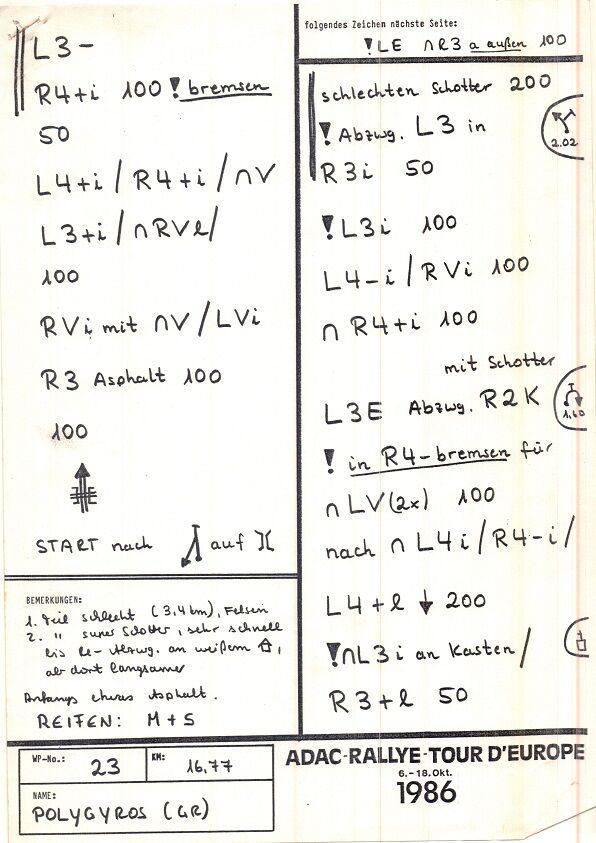 L3-
R4+i 100 ! bremsen
50
L4+i / R4+i / ∩V
L3+i / ∩RVl /
100
RVi mit ∩V / LVi
R3 Asphalt 100
100
START nach auf
BEMERKUNGEN:
1. Teil schlecht (3,4 km), Felsen
2. " super Schotter, sehr schnell
bis Re-Abzwg. an weißem
ab dort langsamer
Anfangs etwas Asphalt.
REIFEN: M+S
WP-No.: 23 KM: 16,77
NAME:
POLYGYROS (GR)
folgendes Zeichen nächste Seite:
!LE ∩R3 a außen 100
schlechten Schotter 200
! Abzwg. L3 in
2.02
R3i 50
!L3i 100
L4-i / RVi 100
∩ R4+i 100
mit Schotter
L3E Abzwg. R2K
1,60
! in R4-bremsen für
∩ LV(2x) 100
nach ∩ L4i / R4-i /
L4+l ↓ 200
!∩L3i an Kasten /
R3+l 50
ADAC-RALLYE-TOUR D'EUROPE
6.-18.Okt.
1986